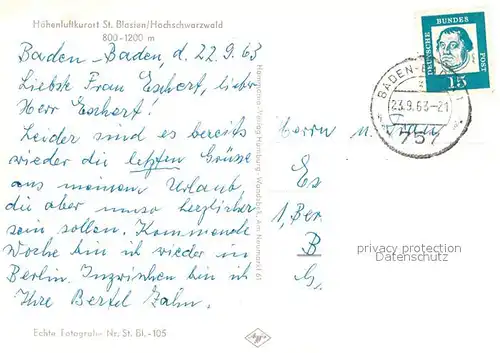 Höhenluftkurort St. Blasien/Hochschwarzwald
800-1200 m
Baden-Baden, d. 22.9.63
Liebste Frau Eschert, lieber
Herr Eschert!
Leider sind es bereits
wieder die letzten Grüße
aus meinem Urlaub,
die aber umso herzlicher
sein sollen. Kommende
Woche bin ich wieder in
Berlin. Inzwischen bin ich
Ihre Bertel Zahn.
Echte Fotografie Nr. St. Bl.-105
Hamburg - Wandsbek, Am Neumarkt
DEUTSCHE BUNDES POST
15
BADEN-
23.9.63-21
757
Herrn u. Frau
Es
1, Ber.
B
privacy protection
Datenschutz
Agfa